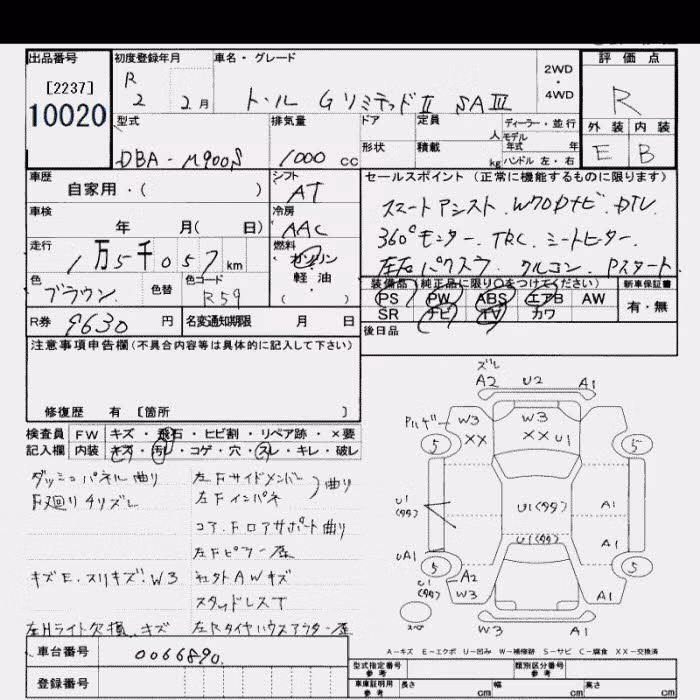 出品番号 初度登録年月 車名・グレード 評価点
[2237] R 2WD
10020 2 2月 トール GリミテッドⅡ SAⅢ ・ 4WD R
型式 排気量 ドア 定員 人 ディーラー・並行 外装 内装
モデル年式 年
DBA-M900S 1000cc 形状 積載 kg ハンドル 左・右 E B
車歴 シフト セールスポイント(正常に機能するものに限ります)
自家用・( ) AT
車検 冷房 スマートアシスト.W70Dナビ.DTV.
年 月( 日) AAC 360°モニター.TRC.シートヒーター.
走行 燃料 左右パワスラ クルコン.Pスタート
1万5千057km ガソリン
色 色替 色コード 軽油 装備品(純正品に限り○をつけてください) 新車保証書
ブラウン R59 ( ) PS PW ABS エアB AW 有・無
R券 9630円 名変通知期限 月 日 SR ナビ TV カワ
後日品
注意事項申告欄(不具合内容等は具体的に記入して下さい)
修復歴 有 [箇所 ]
検査員 FW キズ・飛石・ヒビ割・リペア跡・×要
記入欄 内装 キズ・汚レ・コゲ・穴・スレ・キレ・破レ
ダッシュパネル曲り 左Fサイドメンバー
F廻りチリズレ 左Fインパネ 曲り
コア.Fロアサポート曲り
左Fピラー歪
キズE.スリキズ.W3 社外AWキズ
スタッドレスT
左Hライト欠損.キズ 左Rタイヤハウスアウター歪
ズレ
A2 U2 A1
W3 W3
5 XX XX U1 5
U1(99) U1(99) A1
U1(99) A1
UA1
5 A2 5
U1(99) W3 A1
スペア W3 A1
A-キズ E-エクボ U-凹み W-補修跡 S-サビ C-腐食 XX-交換済
車台番号 0066890.
登録番号
型式指定番号 参考 類別区分番号 参考
車庫証明用 参考 長さ cm 幅 cm 高さ cm